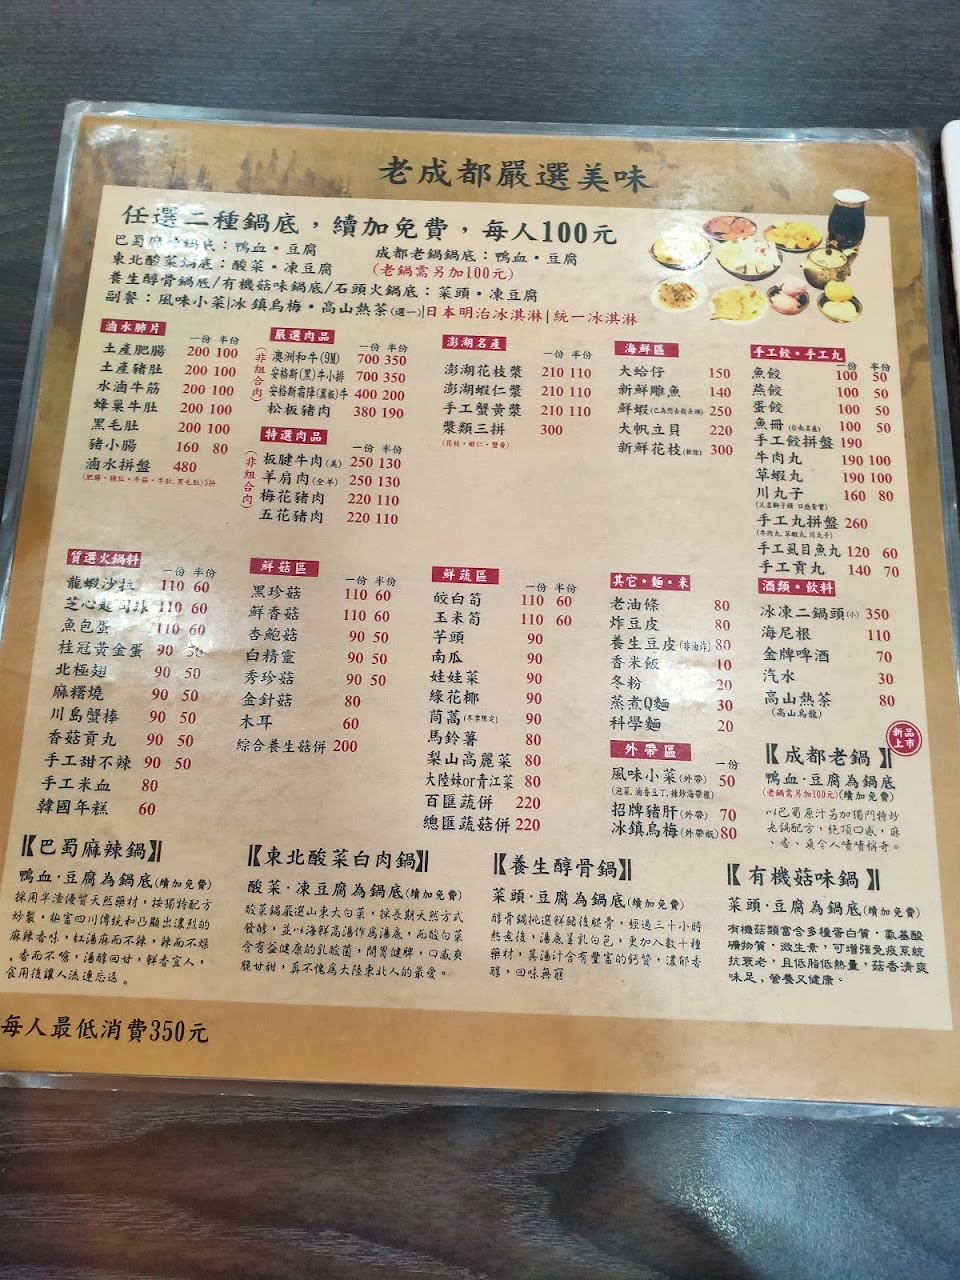 老成都嚴選美味
任選二種鍋底，續加免費，每人100元
巴蜀麻辣鍋底：鴨血·豆腐
成都老鍋鍋底：鴨血·豆腐
東北酸菜鍋底：酸菜·凍豆腐
(老鍋需另加100元)
養生醇骨鍋底/有機菇味鍋底/石頭火鍋底：菜頭·凍豆腐
副餐：風味小菜|冰鎮烏梅·高山熱茶(選一)|日本明治冰淇淋|統一冰淇淋
滷水肺片
一份 半份
土產肥腸 200 100
土產豬肚 200 100
水滷牛筋 200 100
蜂巢牛肚 200 100
黑毛肚 200 100
豬小腸 160 80
滷水拼盤 480
(肥腸·豬肚·牛筋·牛肚.黑毛肚)5拼
嚴選肉品
(非組合肉)
一份 半份
澳洲和牛(9M) 700 350
安格斯(黑)牛小排 700 350
安格斯霜降(翼板)牛 400 200
松板豬肉 380 190
特選肉品
(非組合肉)
一份 半份
板腱牛肉(美) 250 130
羊肩肉(全羊) 250 130
梅花豬肉 220 110
五花豬肉 220 110
澎湖名產
一份 半份
澎湖花枝漿 210 110
澎湖蝦仁漿 210 110
手工蟹黃漿 210 110
漿類三拼 300
(花枝·蝦仁·蟹黃)
海鮮區
大蛤仔 150
新鮮雕魚 140
鮮蝦(已為您去殼去頭) 250
大帆立貝 220
新鮮花枝(軟陸) 300
手工餃·手工丸
一份 半份
魚餃 100 50
燕餃 100 50
蛋餃 100 50
魚冊(台南名產) 100 50
手工餃拼盤 190
牛肉丸 190 100
草蝦丸 190 100
川丸子 160 80
(又名獅子頭 口感紮實)
手工丸拼盤 260
(牛肉丸.草蝦丸.川丸子)
手工虱目魚丸 120 60
手工貢丸 140 70
質選火鍋料
一份 半份
龍蝦沙拉 110 60
芝心起司球 110 60
魚包蛋 110 60
桂冠黃金蛋 90 50
北極翅 90 50
麻糬燒 90 50
川島蟹棒 90 50
香菇貢丸 90 50
手工甜不辣 90 50
手工米血 80
韓國年糕 60
鮮菇區
一份 半份
黑珍菇 110 60
鮮香菇 110 60
杏鮑菇 90 50
白精靈 90 50
秀珍菇 90 50
金針菇 80
木耳 60
綜合養生菇併 200
鮮蔬區
一份 半份
皎白筍 110 60
玉米筍 110 60
芋頭 90
南瓜 90
娃娃菜 90
綠花椰 90
茼蒿(冬季限定) 90
馬鈴薯 80
梨山高麗菜 80
大陸妹or青江菜 80
百匯蔬併 220
總匯蔬菇併 220
其它·麵·米
老油條 80
炸豆皮 80
養生豆皮(非油炸) 80
香米飯 10
冬粉 20
蒸煮Q麵 30
科學麵 20
外帶區
一份
風味小菜(外帶) 50
(泡菜.滷香豆丁.辣炒海帶根)
招牌豬肝(外帶) 70
冰鎮烏梅(外帶瓶) 80
酒類·飲料
冰凍二鍋頭(小) 350
海尼根 110
金牌啤酒 70
汽水 30
高山熱茶 80
(高山烏龍)
新品上市
【成都老鍋】
鴨血·豆腐為鍋底
(老鍋需另加100元)(續加免費)
以巴蜀原汁另加獨門特炒
老鍋配方，絕頂口感，麻
、香、燙令人嘖嘖稱奇。
【巴蜀麻辣鍋】
鴨血·豆腐為鍋底(續加免費)
採用半渣優質天然藥材，按獨特配方
炒製，秘富四川傳統和凸顯出濃烈的
麻辣香味，紅湯麻而不辣，辣而不燥
，香而不嗆，湯醇回甘，鮮香宜人，
食用後讓人流連忘返。
【東北酸菜白肉鍋】
酸菜·凍豆腐為鍋底(續加免費)
酸菜鍋嚴選山東大白菜，採長期天然方式
發酵，並以海鮮高湯作為湯底，而酸白菜
含有益健康的乳酸菌，開胃健脾，口感爽
脆甘甜，真不愧為大陸東北人的最愛。
【養生醇骨鍋】
菜頭·豆腐為鍋底(續加免費)
醇骨鍋挑選鮮豬後腿骨，經過三十小時
熬煮後，湯底呈乳白色，更加入數十種
藥材，其湯汁含有豐富的鈣質，濃郁香
醇，回味無窮
【有機菇味鍋】
菜頭·豆腐為鍋底(續加免費)
有機菇類富含多種蛋白質·氨基酸
礦物質·微生素，可增強免疫系統
抗衰老，且低脂低熱量，菇香清爽
味足，營養又健康。
每人最低消費350元